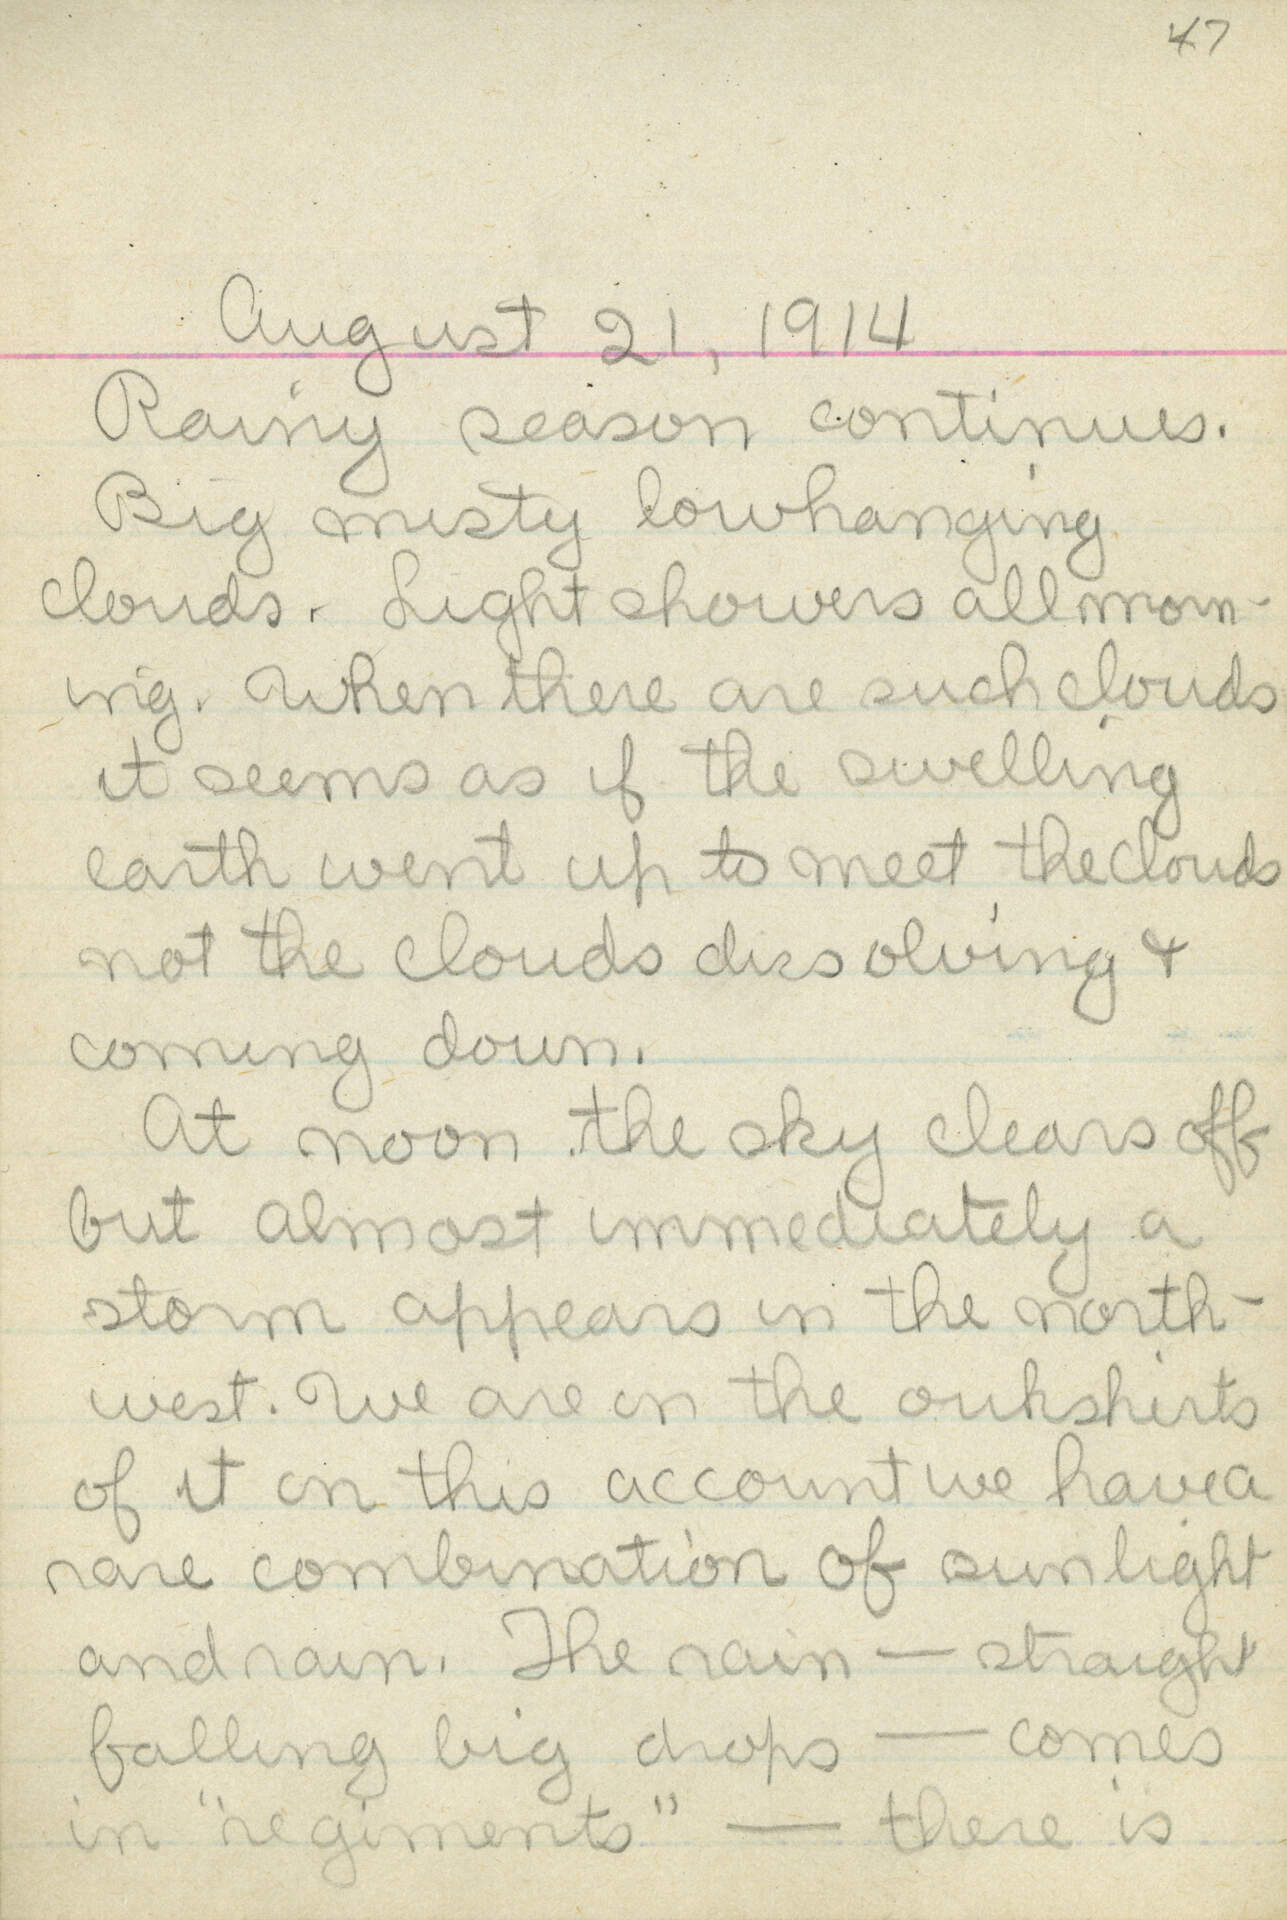 47
August 21, 1914
Rainy season continues.
Big misty lowhanging
clouds. Light showers all morn-
ing. When there are such clouds
it seems as if the swelling
earth went up to meet the clouds
not the clouds dissolving &
coming down.
At noon the sky clears off
but almost immediately a
storm appears in the north-
west. We are in the outskirts
of it on this account we have a
rare combination of sunlight
and rain. The rain — straight
falling big drops — comes
in "regiments" — there is